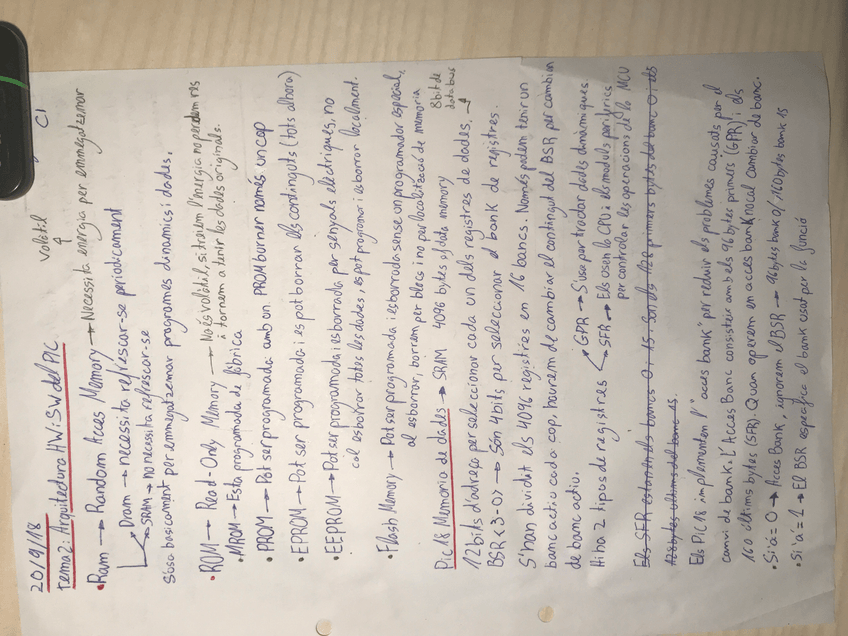 20/9/18
C1
Tema 2: Arquitectura HW i SW del PIC
Volàtil
• Ram → Random Acces Memory → Necessita energia per emmegatzemar
Dram → necessita refrescar-se periodicament
SRAM → no necessita refrescar-se
S'uso basicament per emmagatzemar programes dinamics i dades.
• ROM → Read-Only Memory → No és volàtil, si treiem l'energia no perdem res
i tornem a tenir les dades originals.
• MROM → Esta programada de fàbrica
• PROM → Pot ser programada amb un PROM borner només un cop
• EPROM → Pot ser programada i es pot borrar els continguts (tots alhora)
• EEPROM → Pot ser programada i esborrada per senyals elèctriques, no
cal esborrar totes les dades, es pot programar i esborrar localment.
• Flash Memory → Pot ser programada i esborrada sense un programador especial,
al esborrar, borrem per blocs i no per localització de memoria
Pic 18 Memoria de dades → SRAM 4096 bytes of data memory
8 bit de
data bus
12 bits d'adreça per seleccionar cada un dels registres de dades.
BSR <3-0> → Són 4 bits per seleccionar el bank de registres.
S'han dividit els 4096 registres en 16 bancs. Només podem tenir un
banc actiu cada cop, haurem de cambiar el contingut del BSR per cambiar
de banc actiu.
Hi ha 2 tipos de registres
GPR → S'usa per tractar dades dinàmiques.
SFR → Els usen la CPU i els moduls periferics
per controlar les operacions de la MCU
Els SFR estan en els bancs 0 i 15 - son els 128 primers bytes del banc 0 i els
128 bytes ultims del banc 15.
Els PIC 18 implementen l'"acces bank" per reduir els problemes causats per el
canvi de bank. L'Acces Banc consisteix amb els 96 bytes primers (GPR) i els
160 ultims bytes (SFR). Quan operem en acces bank no cal cambiar de banc.
• Si 'a' = 0 → Acces Bank, ignorem el BSR → 96 bytes bank 0 / 160 bytes bank 15
• Si 'a' = 1 → El BSR especifica el bank usat per la funció